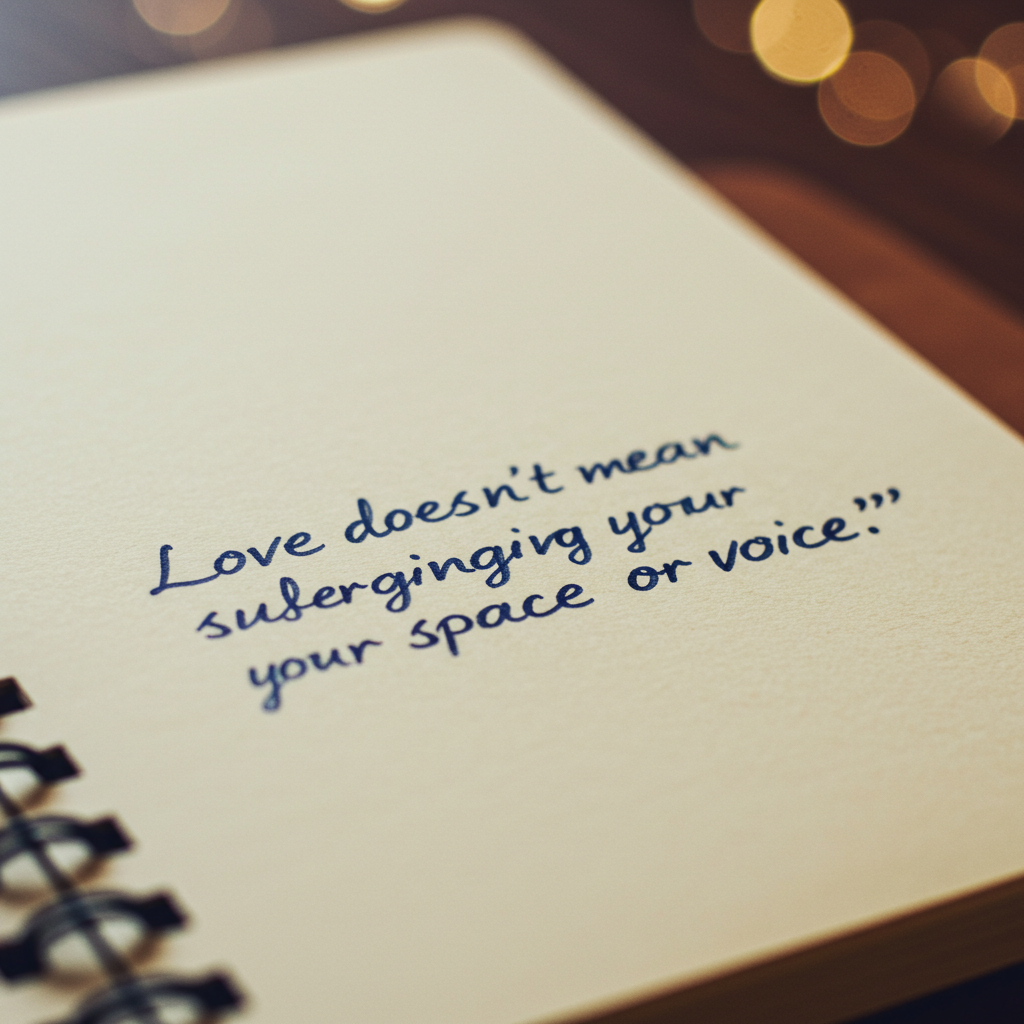 Love doesn't mean
suferginging your
your space or voice.”’